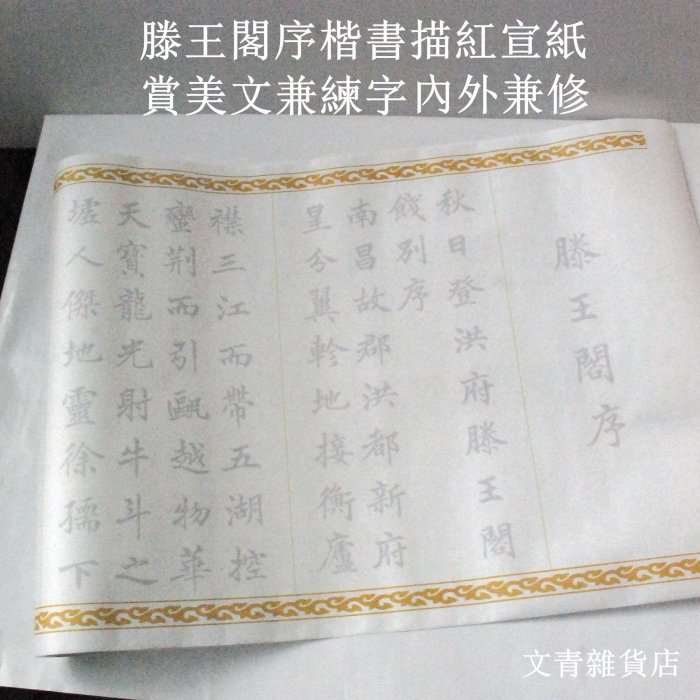 滕王閣序楷書描紅宣紙
賞美文兼練字內外兼修
滕王閣序
秋日登洪府滕王閣
餞別序
南昌故郡洪都新府
星分翼軫地接衡廬
襟三江而帶五湖控
蠻荊而引甌越物華
天寶龍光射牛斗之
墟人傑地靈徐孺下
文青雜貨店